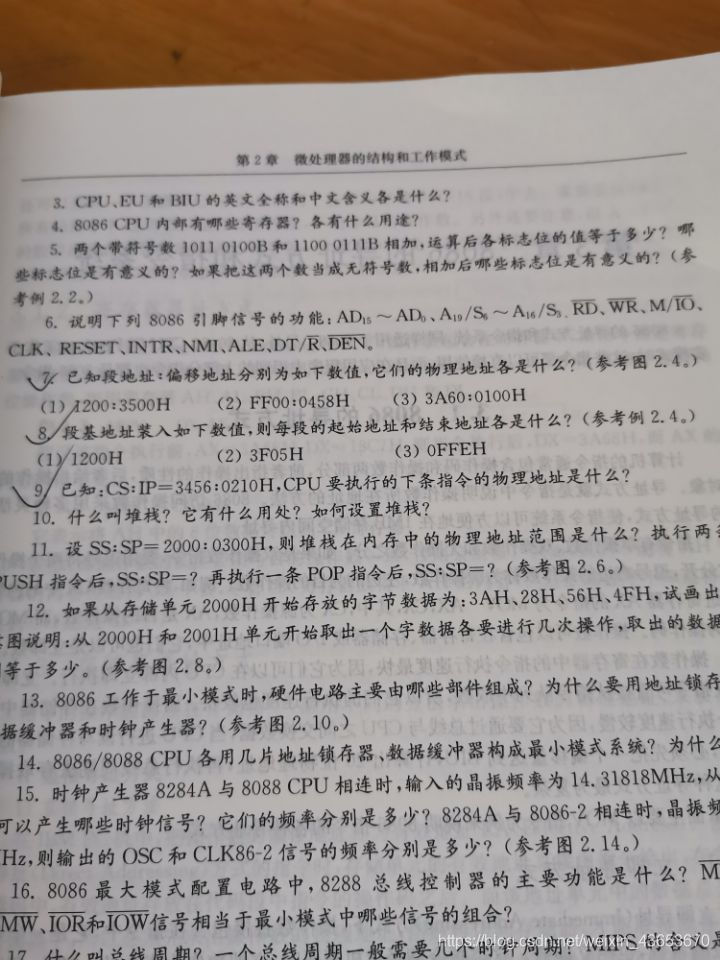 第2章 微处理器的结构和工作模式
3. CPU、EU 和 BIU 的英文全称和中文含义各是什么?
4. 8086 CPU 内部有哪些寄存器? 各有什么用途?
5. 两个带符号数 1011 0100B 和 1100 0111B 相加,运算后各标志位的值等于多少? 哪
些标志位是有意义的? 如果把这两个数当成无符号数,相加后哪些标志位是有意义的?(参
考例 2.2。)
6. 说明下列 8086 引脚信号的功能:AD₁₅～AD₀、A₁₉/S₆～A₁₆/S₃、R̅D̅、W̅R̅、M/I̅O̅、
CLK、RESET、INTR、NMI、ALE、DT/R̅、D̅E̅N̅。
7. 已知段地址:偏移地址分别为如下数值,它们的物理地址各是什么?(参考图 2.4。)
(1) 1200:3500H (2) FF00:0458H (3) 3A60:0100H
8. 段基地址装入如下数值,则每段的起始地址和结束地址各是什么?(参考例 2.4。)
(1) 1200H (2) 3F05H (3) 0FFEH
9. 已知:CS:IP=3456:0210H,CPU 要执行的下条指令的物理地址是什么?
10. 什么叫堆栈? 它有什么用处? 如何设置堆栈?
11. 设 SS:SP=2000:0300H,则堆栈在内存中的物理地址范围是什么? 执行两条
PUSH 指令后,SS:SP=? 再执行一条 POP 指令后,SS:SP=?(参考图 2.6。)
12. 如果从存储单元 2000H 开始存放的字节数据为:3AH、28H、56H、4FH,试画出
图说明:从 2000H 和 2001H 单元开始取出一个字数据各要进行几次操作,取出的数据
等于多少。(参考图 2.8。)
13. 8086 工作于最小模式时,硬件电路主要由哪些部件组成? 为什么要用地址锁存
据缓冲器和时钟产生器?(参考图 2.10。)
14. 8086/8088 CPU 各用几片地址锁存器、数据缓冲器构成最小模式系统? 为什么
15. 时钟产生器 8284A 与 8088 CPU 相连时,输入的晶振频率为 14.31818MHz,从
可以产生哪些时钟信号? 它们的频率分别是多少? 8284A 与 8086-2 相连时,晶振频
Hz,则输出的 OSC 和 CLK86-2 信号的频率分别是多少?(参考图 2.14。)
16. 8086 最大模式配置电路中,8288 总线控制器的主要功能是什么? M̅
M̅W̅、I̅O̅R̅和I̅O̅W̅信号相当于最小模式中哪些信号的组合?
17. 什么叫总线周期? 一个总线周期一般需要几个时钟周期? MIPS 的含义是
https://blog.csdn.net/weixin_43653670